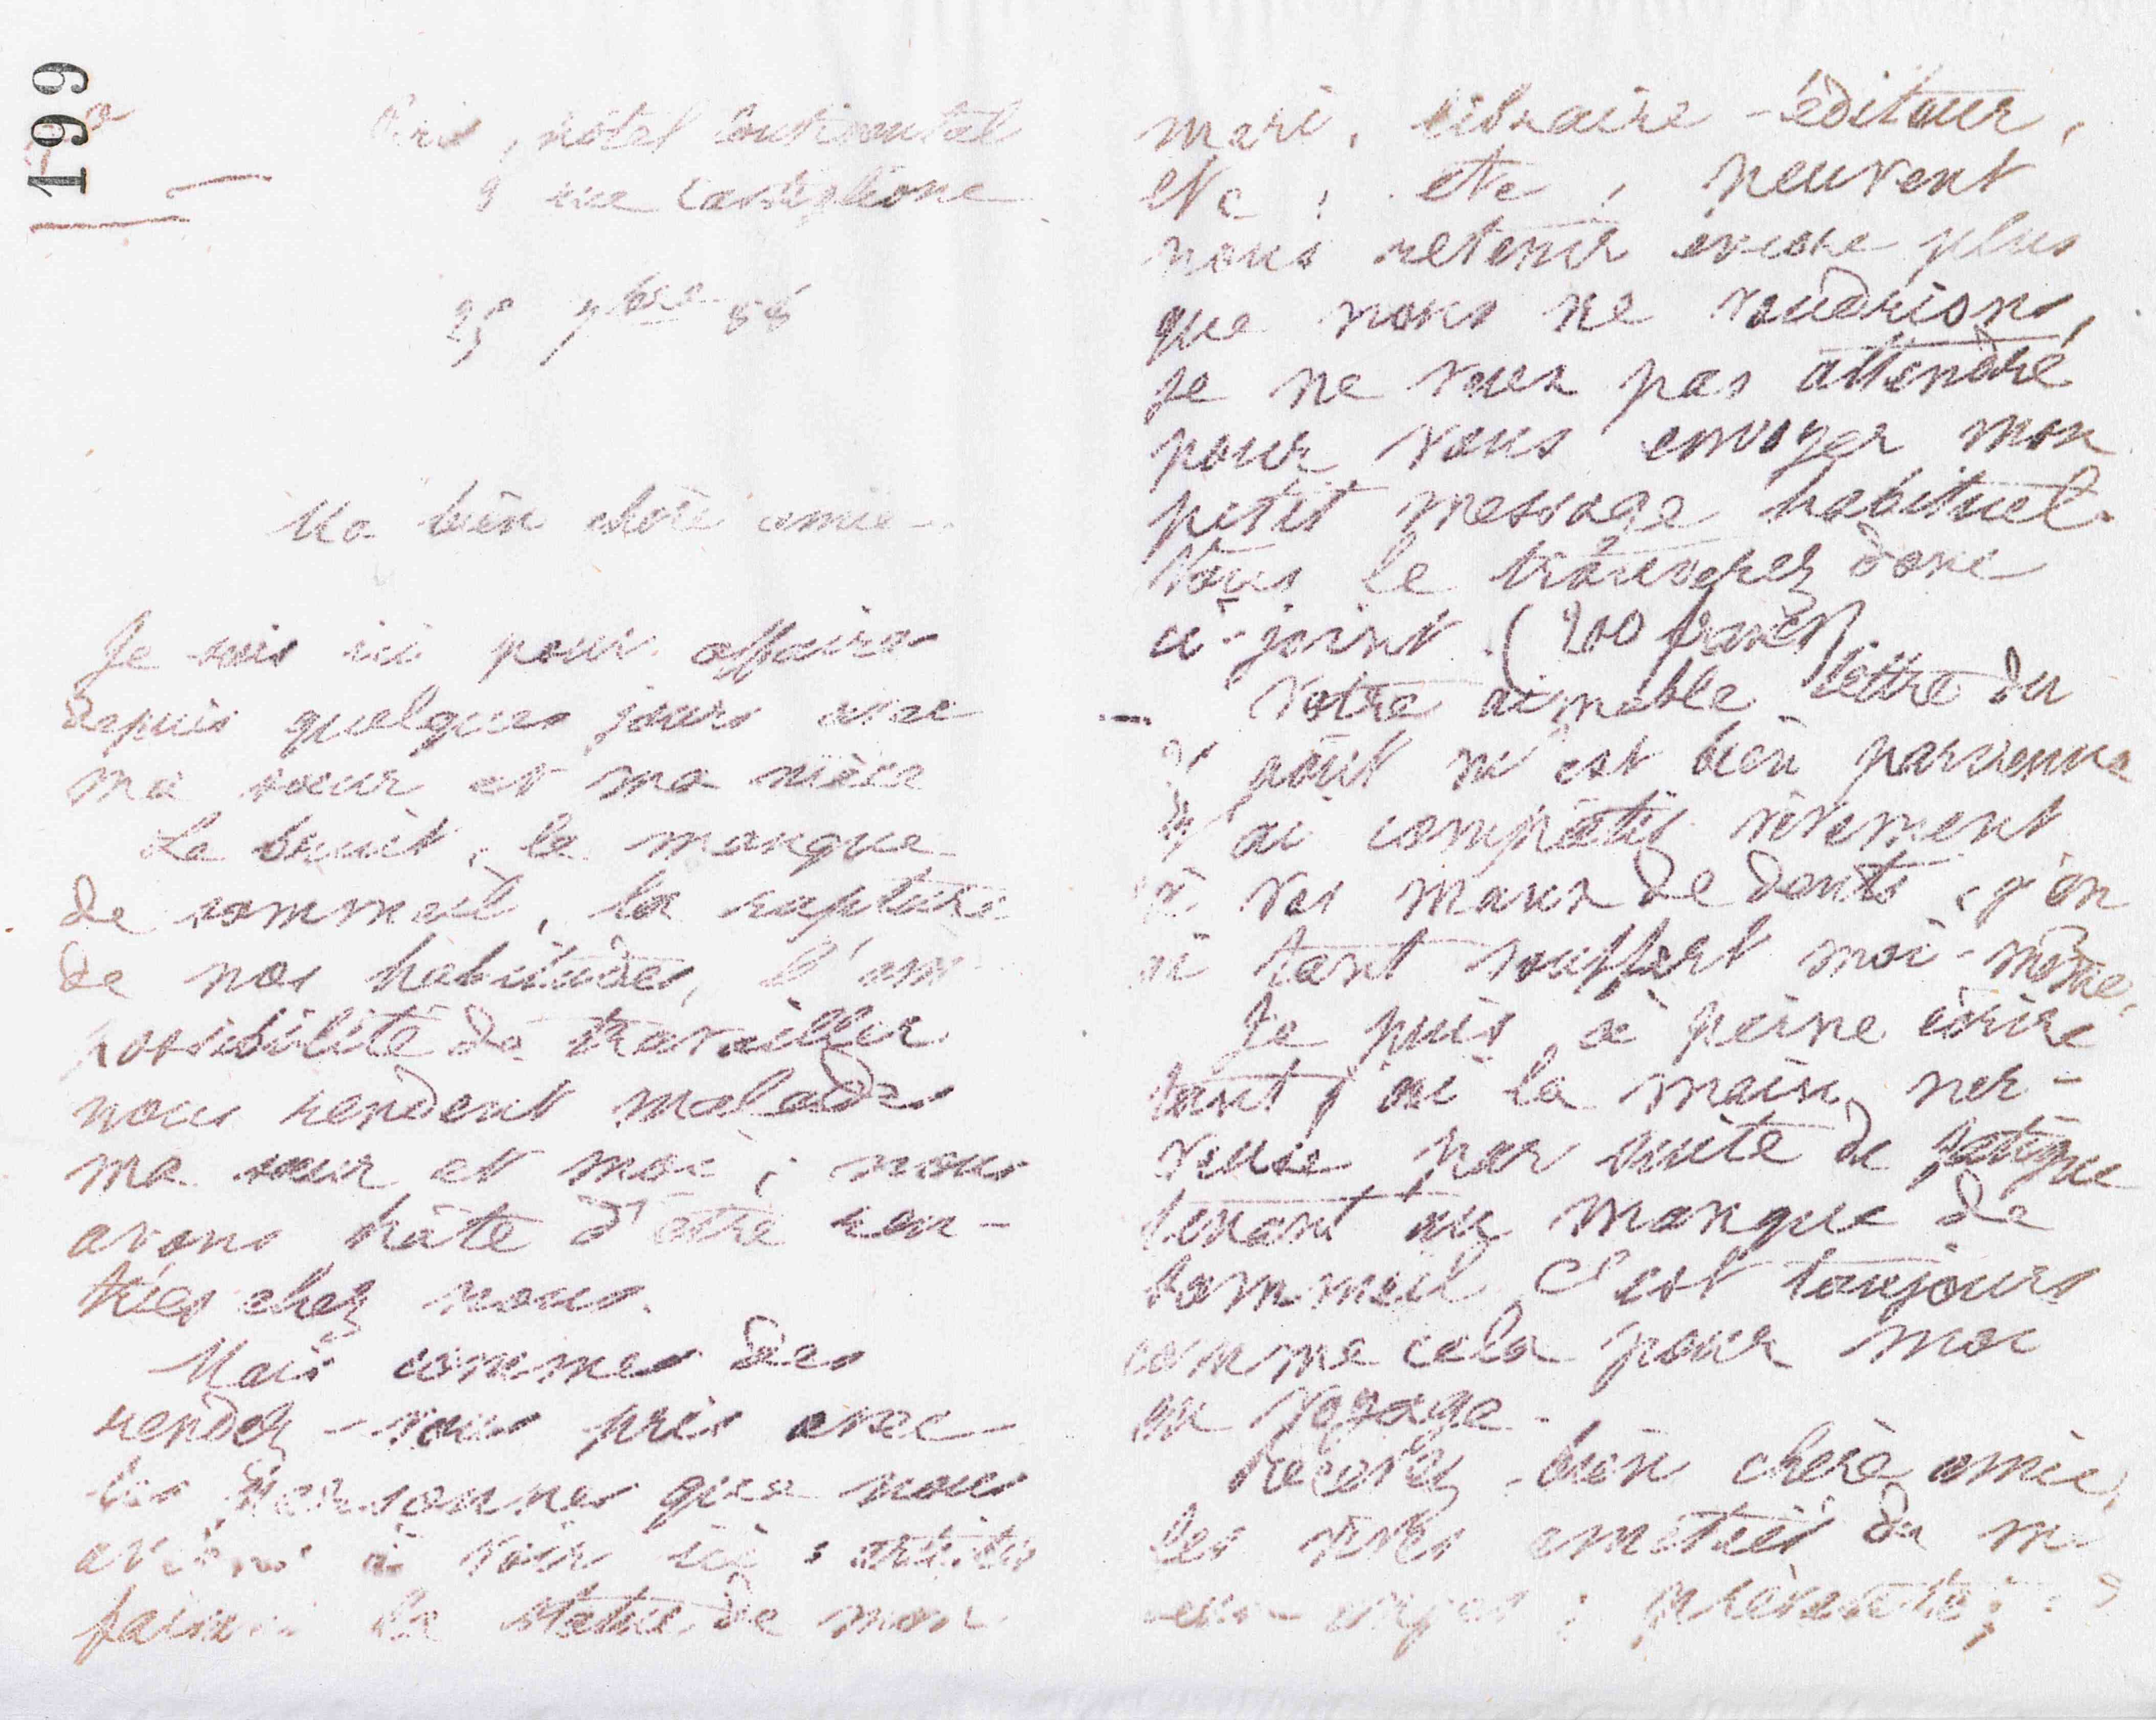 199
Paris, hôtel Continental
9 rue Castiglione
25 7bre 88
Ma bien chère amie
Je suis ici pour affaires
depuis quelques jours avec
ma sœur et ma nièce
Le bruit, le manque
de sommeil, la rupture
de nos habitudes, l'im
possibilité de travailler
nous rendent malades
ma sœur et moi ; nous
avons hâte d'être ren-
trées chez nous.
Mais comme des
rendez-vous pris avec
les personnes que nous
avons à voir ici : artiste
faisant la statue de mon
mari, libraire-éditeur,
etc, etc, peuvent
nous retenir encore plus
que nous ne voudrions,
je ne veux pas attendre
pour vous envoyer mon
petit message habituel.
Vous le trouverez donc
ci-joint (200 francs).
Votre aimable lettre du
août m'est bien parvenue
j'ai compati vivement
à vos maux de dents, j'en
ai tant souffert moi-même,
Je puis à peine écrire
tant j'ai la main ner-
veuse par suite de fatigue
tenant au manque de
sommeil c'est toujours
comme cela pour moi
en voyage.
Recevez bien chère amie,
les vives amitiés de m